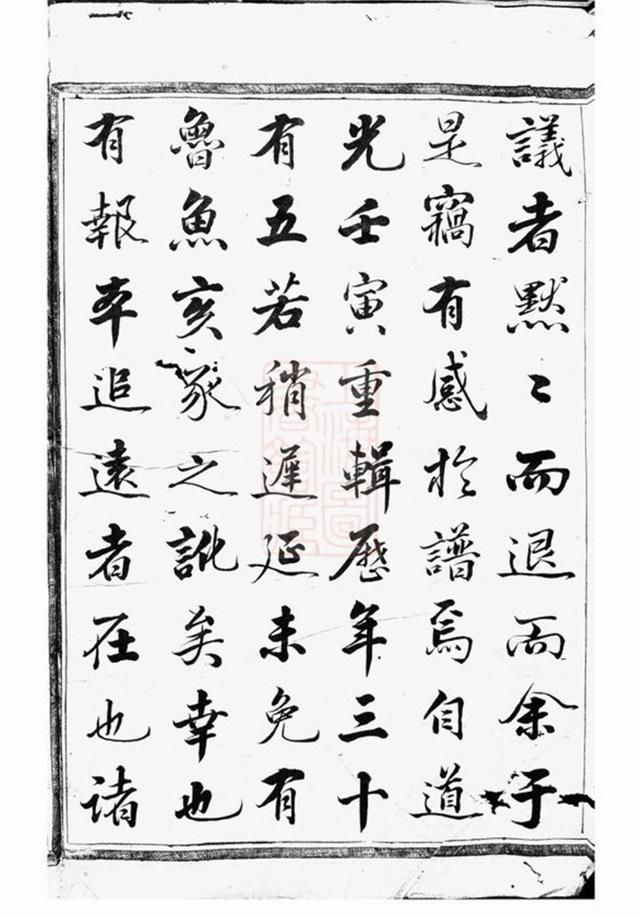 議者默〻而退而余于
是竊有感於譜焉自道
光壬寅重輯歷年三十
有五若稍遲延未免有
魯魚亥豕之訛矣幸也
有報本追遠者在也诸